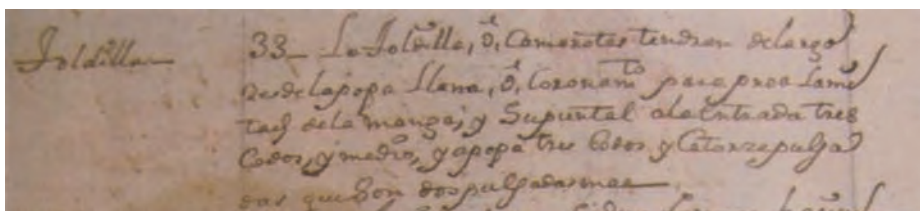 Toldilla
33_ La toldilla, ó, Camarotes tendran de largo
desde la popa llana, ó, Coronamto para proa la mi
tad de la manga, y Su puntal ala entrada tres
Codos, y medio, y a popa tres Codos y Catorze pulga
das que son dos pulgadas mas